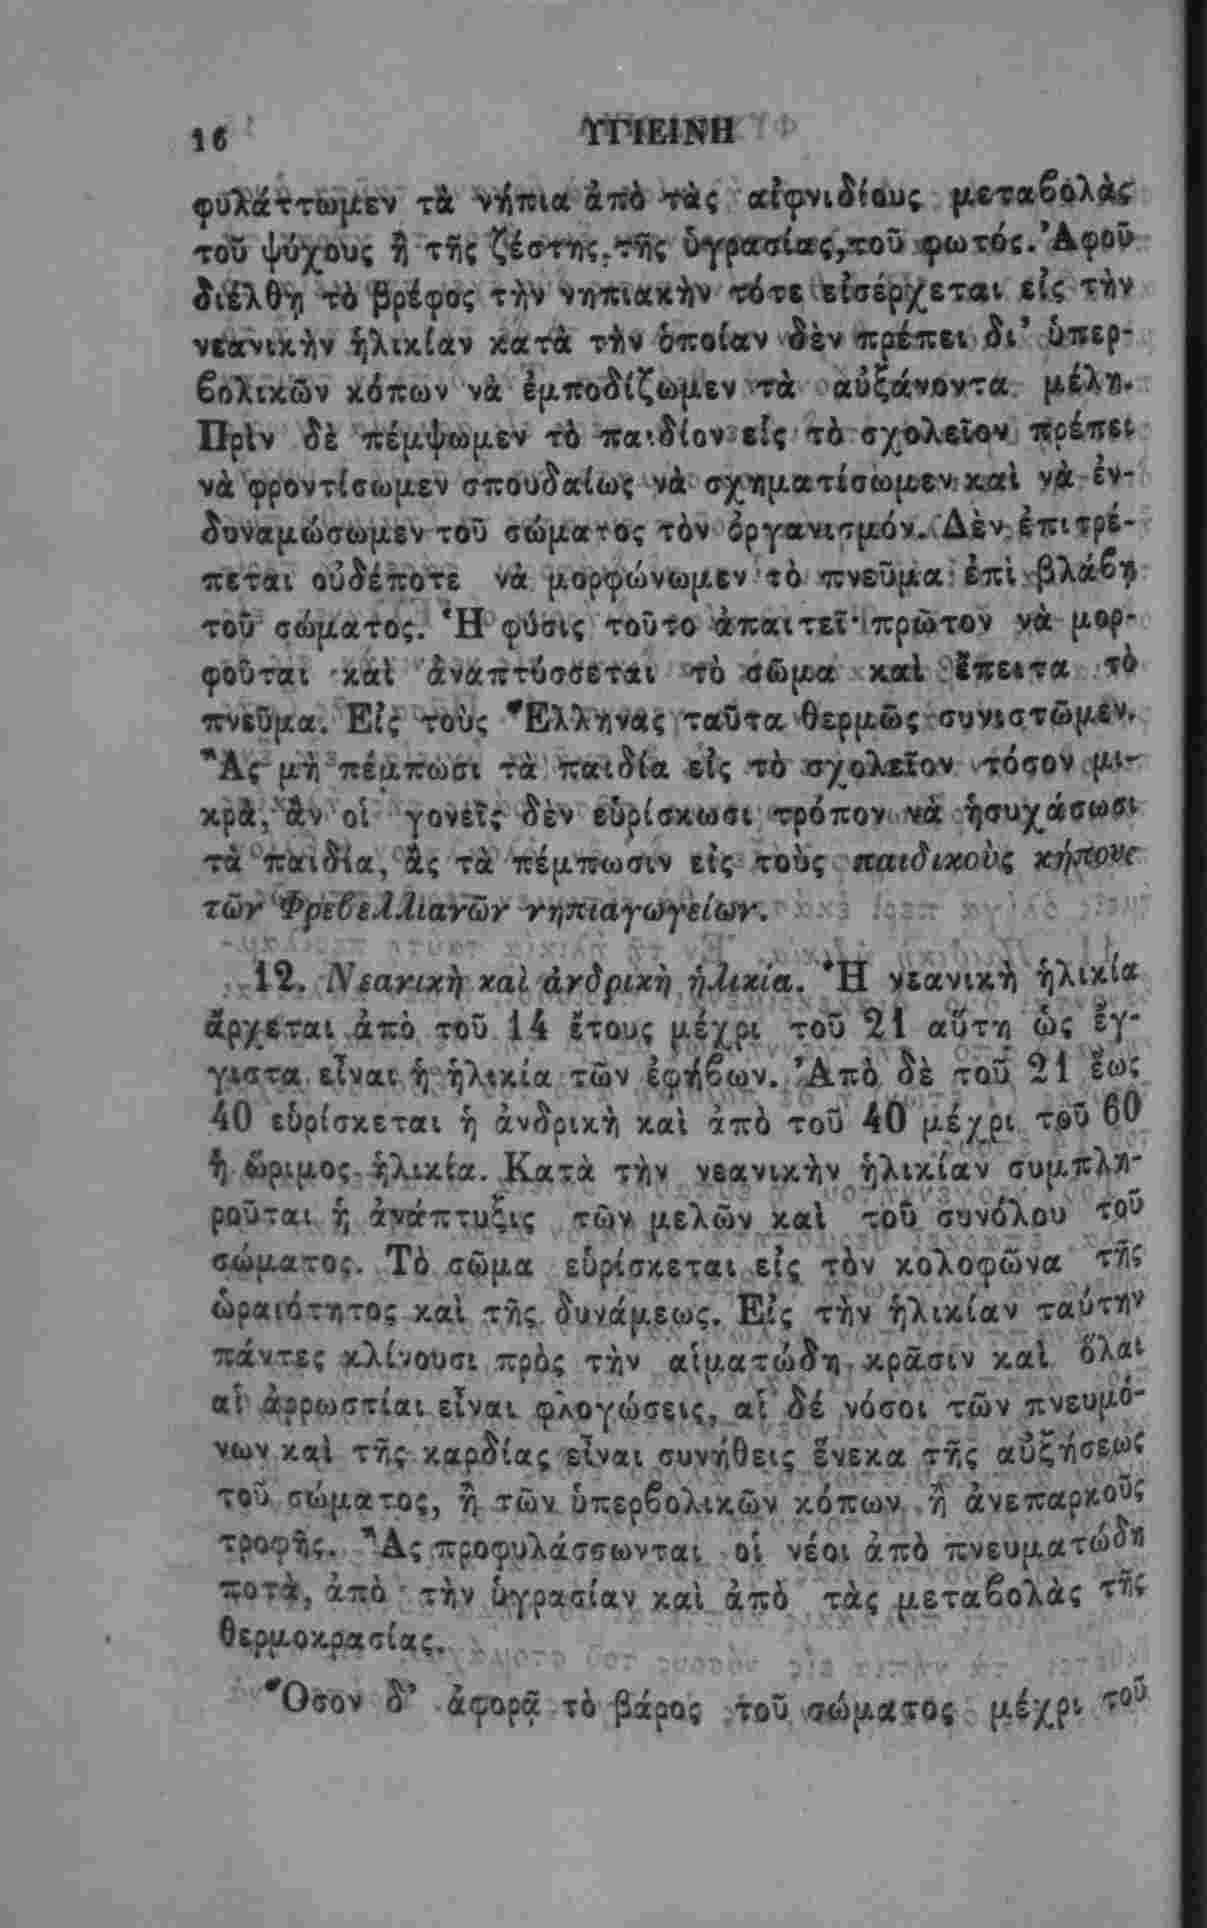 16 ΥΓΙΕΙΝΗ
φυλάττωμεν τὰ νήπια ἀπὸ τὰς αἰφνιδίους μεταβολὰς
τοῦ ψύχους ἢ τῆς ζέστης, τῆς ὑγρασίας, τοῦ φωτός. Ἀφοῦ
διέλθῃ τὸ βρέφος τὴν νηπιακὴν τότε εἰσέρχεται εἰς τὴν
νεανικὴν ἡλικίαν κατὰ τὴν ὁποίαν δὲν πρέπει δι’ ὑπερ-
βολικῶν κόπων νὰ ἐμποδίζωμεν τὰ αὐξάνοντα μέλη.
Πρὶν δὲ πέμψωμεν τὸ παιδίον εἰς τὸ σχολεῖον πρέπει
νὰ φροντίσωμεν σπουδαίως νὰ σχηματίσωμεν καὶ νὰ ἐν-
δυναμώσωμεν τοῦ σώματος τὸν ὀργανισμόν. Δὲν ἐπιτρέ-
πεται οὐδέποτε νὰ μορφώνωμεν τὸ πνεῦμα ἐπὶ βλάβῃ
τοῦ σώματος. Ἡ φύσις τοῦτο ἀπαιτεῖ· πρῶτον νὰ μορ-
φοῦται καὶ ἀναπτύσσεται τὸ σῶμα καὶ ἔπειτα τὸ
πνεῦμα. Εἰς τοὺς Ἕλληνας ταῦτα θερμῶς συνιστῶμεν.
Ἂς μὴ πέμπωσι τὰ παιδία εἰς τὸ σχολεῖον τόσον μι-
κρὰ, ἂν οἱ γονεῖς δὲν εὑρίσκωσι τρόπον νὰ ἡσυχάσωσι
τὰ παιδία, ἂς τὰ πέμπωσιν εἰς τοὺς παιδικοὺς κήπους
τῶν Φρεβελλιανῶν νηπιαγωγείων.
12. Νεανικὴ καὶ ἀνδρικὴ ἡλικία. Ἡ νεανικὴ ἡλικία
ἄρχεται ἀπὸ τοῦ 14 ἔτους μέχρι τοῦ 21 αὕτη ὡς ἔγ-
γιστα εἶναι ἡ ἡλικία τῶν ἐφήβων. Ἀπὸ δὲ τοῦ 21 ἕως
40 εὑρίσκεται ἡ ἀνδρικὴ καὶ ἀπὸ τοῦ 40 μέχρι τοῦ 60
ἡ ὥριμος ἡλικία. Κατὰ τὴν νεανικὴν ἡλικίαν συμπλη-
ροῦται ἡ ἀνάπτυξις τῶν μελῶν καὶ τοῦ συνόλου τοῦ
σώματος. Τὸ σῶμα εὑρίσκεται εἰς τὸν κολοφῶνα τῆς
ὡραιότητος καὶ τῆς δυνάμεως. Εἰς τὴν ἡλικίαν ταύτην
πάντες κλίνουσι πρὸς τὴν αἱματώδη κρᾶσιν καὶ ὅλαι
αἱ ἀρρωστίαι εἶναι φλογώσεις, αἱ δέ νόσοι τῶν πνευμό-
νων καὶ τῆς καρδίας εἶναι συνήθεις ἕνεκα τῆς αὐξήσεως
τοῦ σώματος, ἢ τῶν ὑπερβολικῶν κόπων ἢ ἀνεπαρκοῦς
τροφῆς. Ἂς προφυλάσσωνται οἱ νέοι ἀπὸ πνευματώδη
ποτὰ, ἀπὸ τὴν ὑγρασίαν καὶ ἀπὸ τὰς μεταβολὰς τῆς
θερμοκρασίας.
Ὅσον δ’ ἀφορᾷ τὸ βάρος τοῦ σώματος μέχρι τοῦ